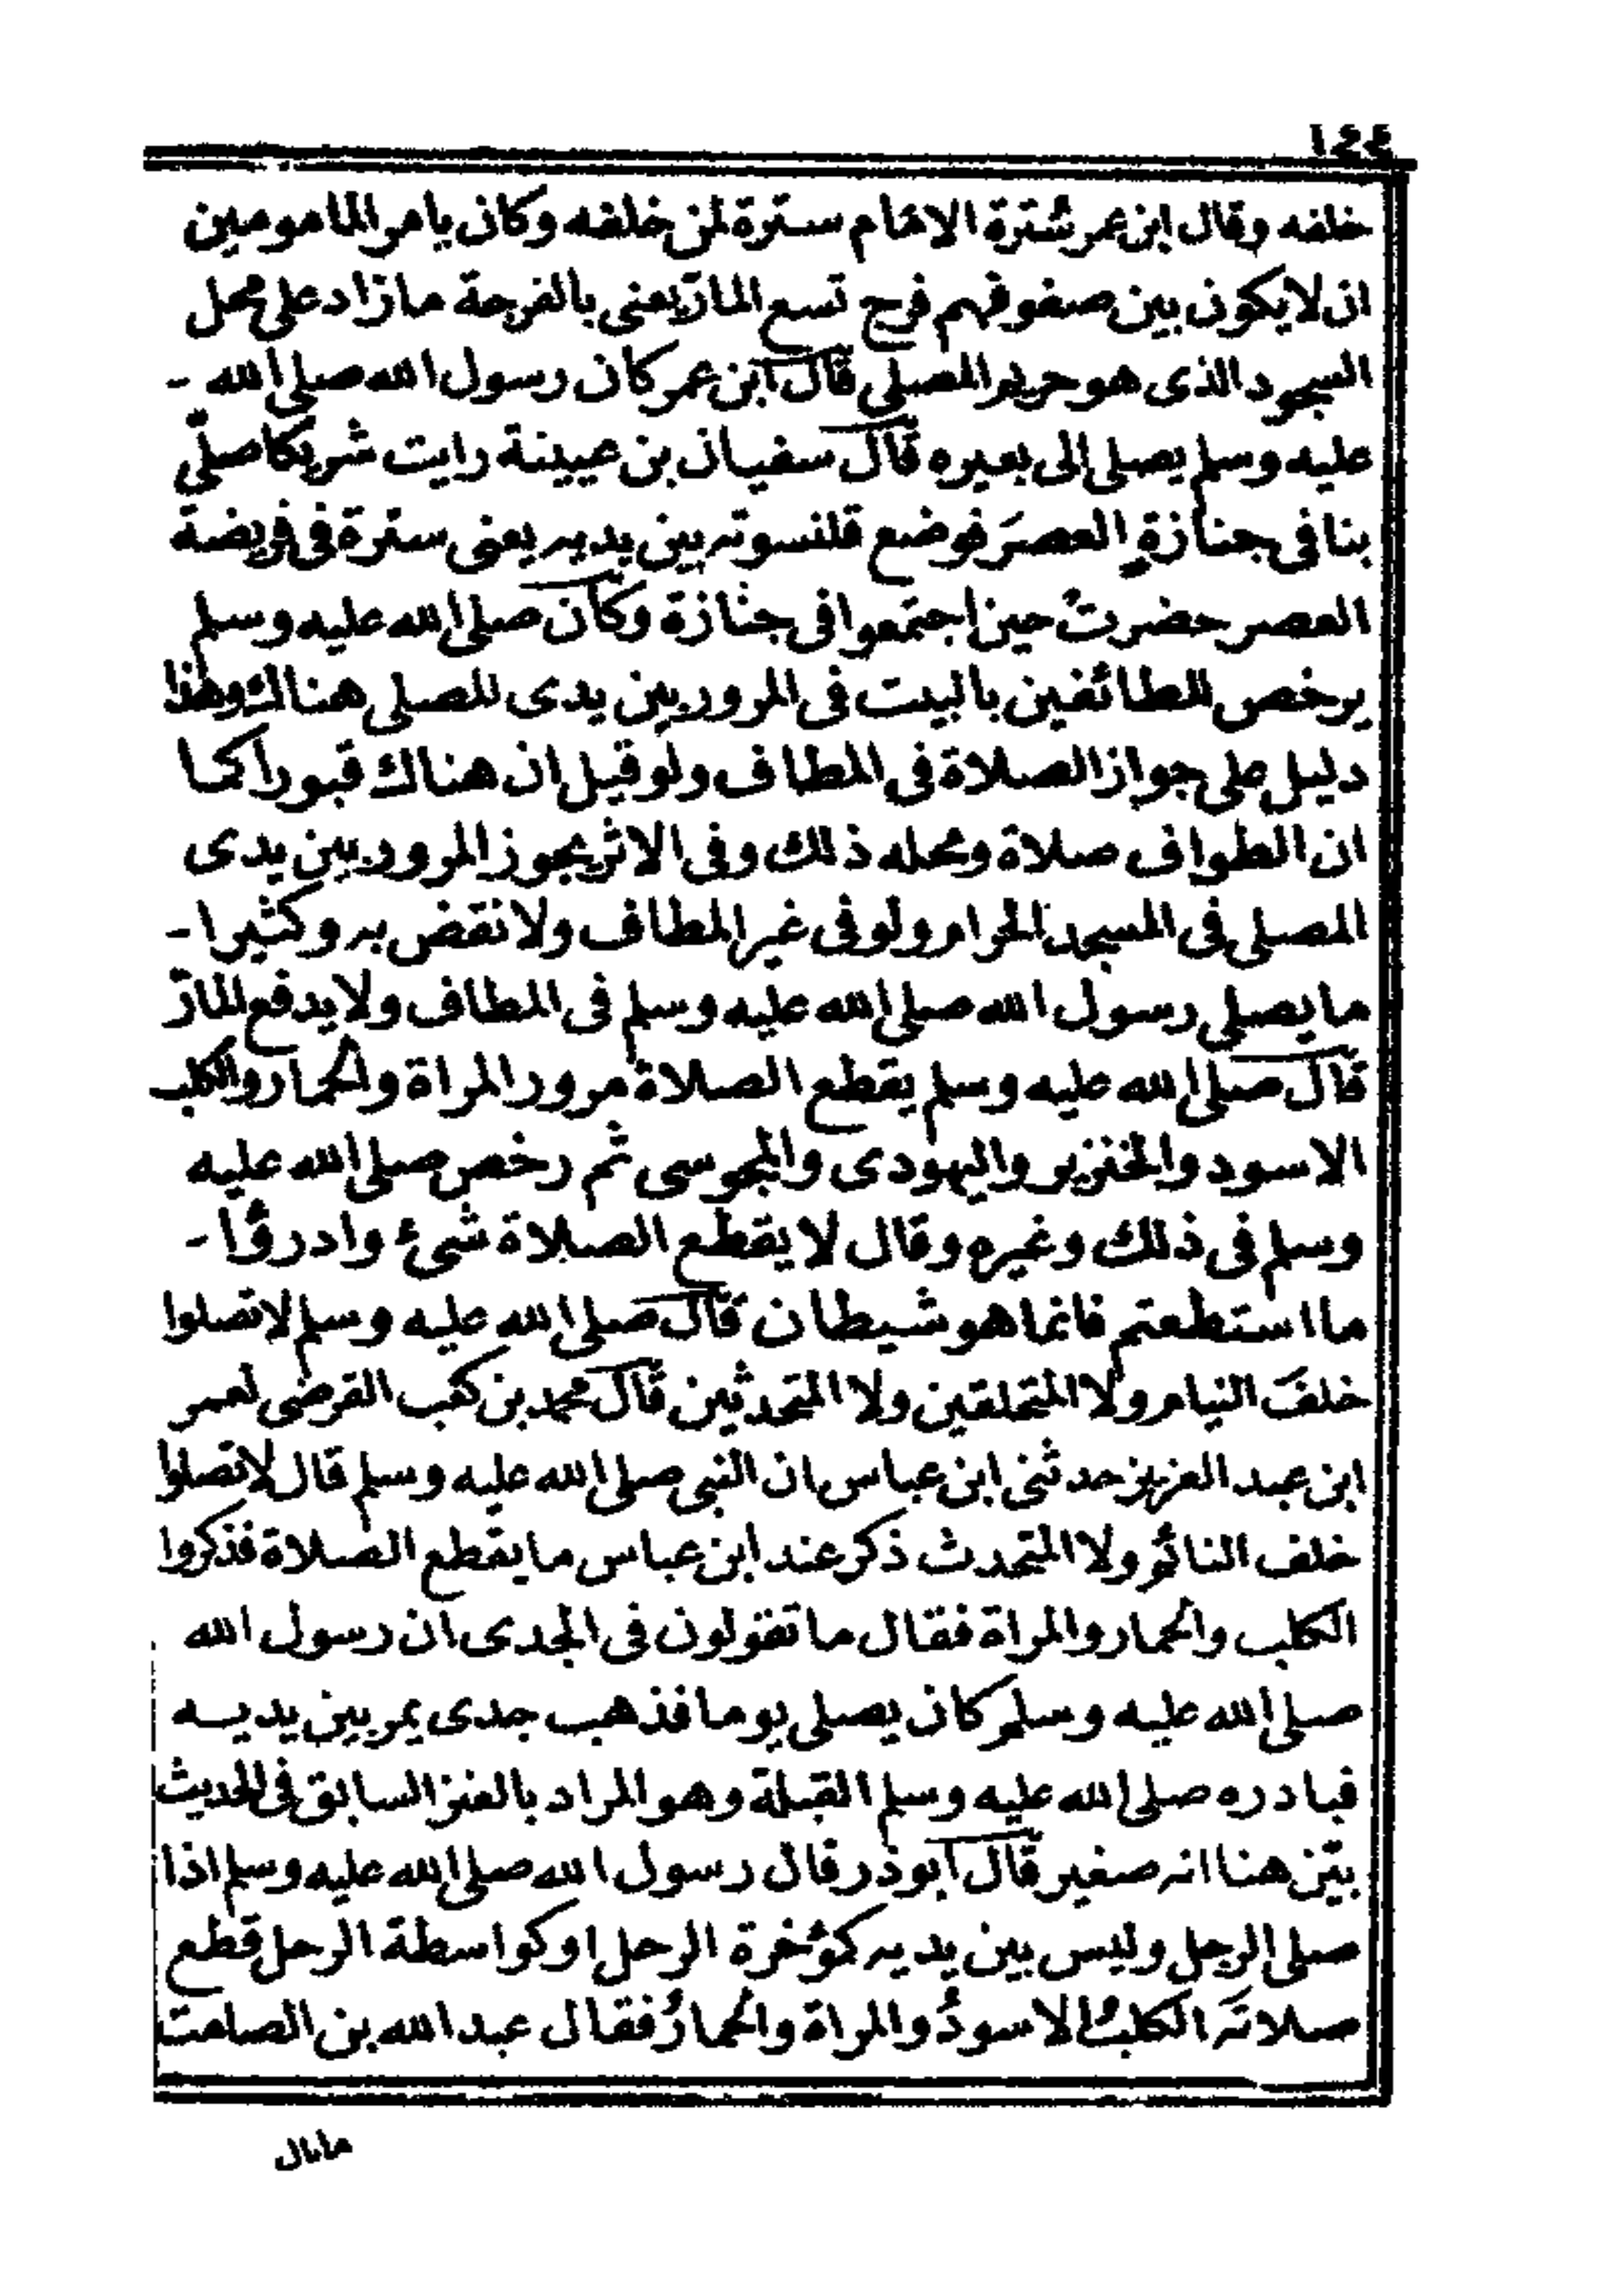 ١٤٤
خلفه وقال ابن عمر سُترة الامام سترة لمن خلفه وكان يامر المامومين
ان لا يكون بين صفوفهم فرج تسع المارّ يعنى بالفرجة ما زاد على محل
السجود الذى هو حريم المصلى قال ابن عمر كان رسول الله صلى الله -
عليه وسلم يصلى الى بعيره قال سفيان بن عيينة رايت شريكا صلّى
بنا فى جنازةٍ العصرَ فوضع قلنسوته بين يديه يعنى سترة فى فريضة
العصر حضرتْ حين اجتمعوا فى جنازة وكان صلى الله عليه وسلم
يرخص للطائفين بالبيت فى المرور بين يدى المصلى هنالك وهذا
دليل على جواز الصلاة فى المطاف ولو قيل ان هناك قبورا كما
ان الطواف صلاة ومحله ذلك وفى الاثر يجوز المرور بين يدى
المصلى فى المسجد الحرام ولو فى غير المطاف ولا نقض به وكثيرا -
ما يصلى رسول الله صلى الله عليه وسلم فى المطاف ولا يدفع المارّ
قال صلى الله عليه وسلم يقطع الصلاة مرور المراة والحمار والكلب
الاسود والخنزير واليهودى والمجوسى ثم رخص صلى الله عليه
وسلم فى ذلك وغيره وقال لا يقطع الصلاة شىء وادرؤا -
ما استطعتم فانما هو شيطان قال صلى الله عليه وسلم لا تصلوا
خلفَ النيام ولا المتحلقين ولا المتحدثين قال محمد بن كعب القرضى لعمر
ابن عبد العزيز حدثنى ابن عباس ان النبى صلى الله عليه وسلم قال لا تصلوا
خلف النائم ولا المتحدث ذكر عند ابن عباس ما يقطع الصلاة فذكروا
الكلب والحمار والمراة فقال ما تقولون فى الجدى ان رسول الله
صلى الله عليه وسلم كان يصلى يوما فذهب جدى يمر بين يديه
فبادره صلى الله عليه وسلم القبلة وهو المراد بالعنز السابق فى الحديث
بيّن هنا انه صغير قال ابو ذر قال رسول الله صلى الله عليه وسلم اذا
صلى الرجل وليس بين يديه كمؤخرة الرحل او كواسطة الرحل قطع
صلاتَه الكلبُ الاسودُ والمراة والحمارُ فقال عبد الله بن الصامت
ما بال